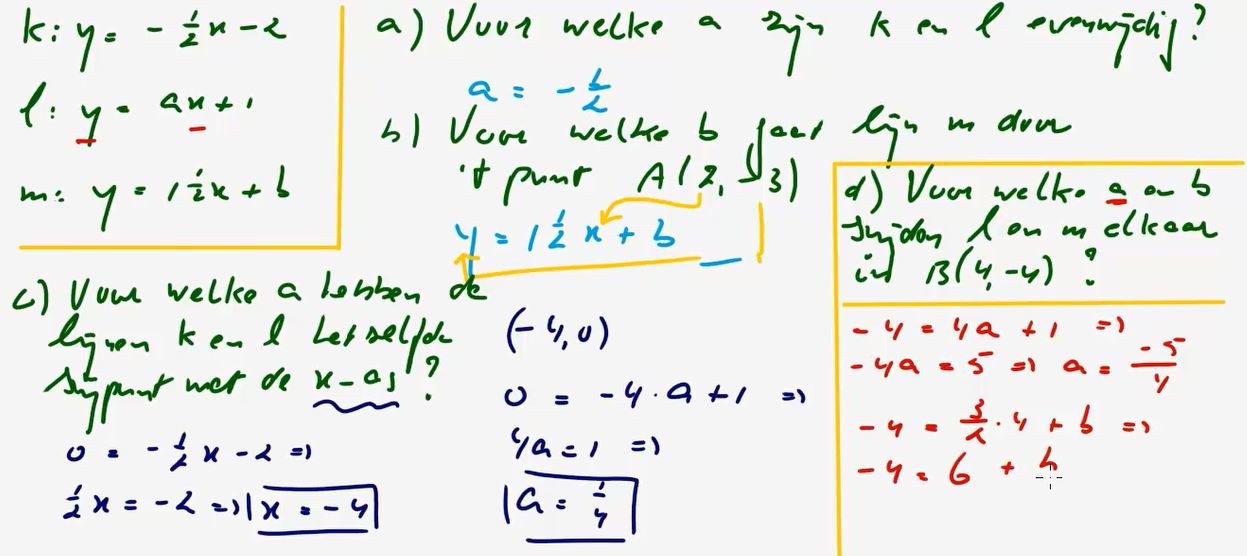 k: y = -1/2x - 2
l: y = ax + 1
m: y = 1 1/2x + b
a) Voor welke a zijn k en l evenwijdig?
a = -1/2
b) Voor welke b gaat lijn m door
't punt A(2, 3)
y = 1 1/2 x + b
c) Voor welke a hebben de
lijnen k en l hetzelfde
snijpunt met de x-as?
0 = -1/2 x - 2 =>
1/2 x = -2 => x = -4
(-4, 0)
0 = -4 · a + 1 =>
4a = 1 =>
a = 1/4
d) Voor welke a en b
snijden l en m elkaar
in B(4, -4)?
-4 = 4a + 1 =>
-4a = 5 => a = -5/4
-4 = 3/2 · 4 + b =>
-4 = 6 + b